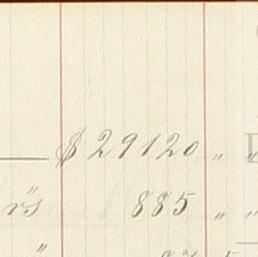 $ 29120 " "
rs 885 " "
"